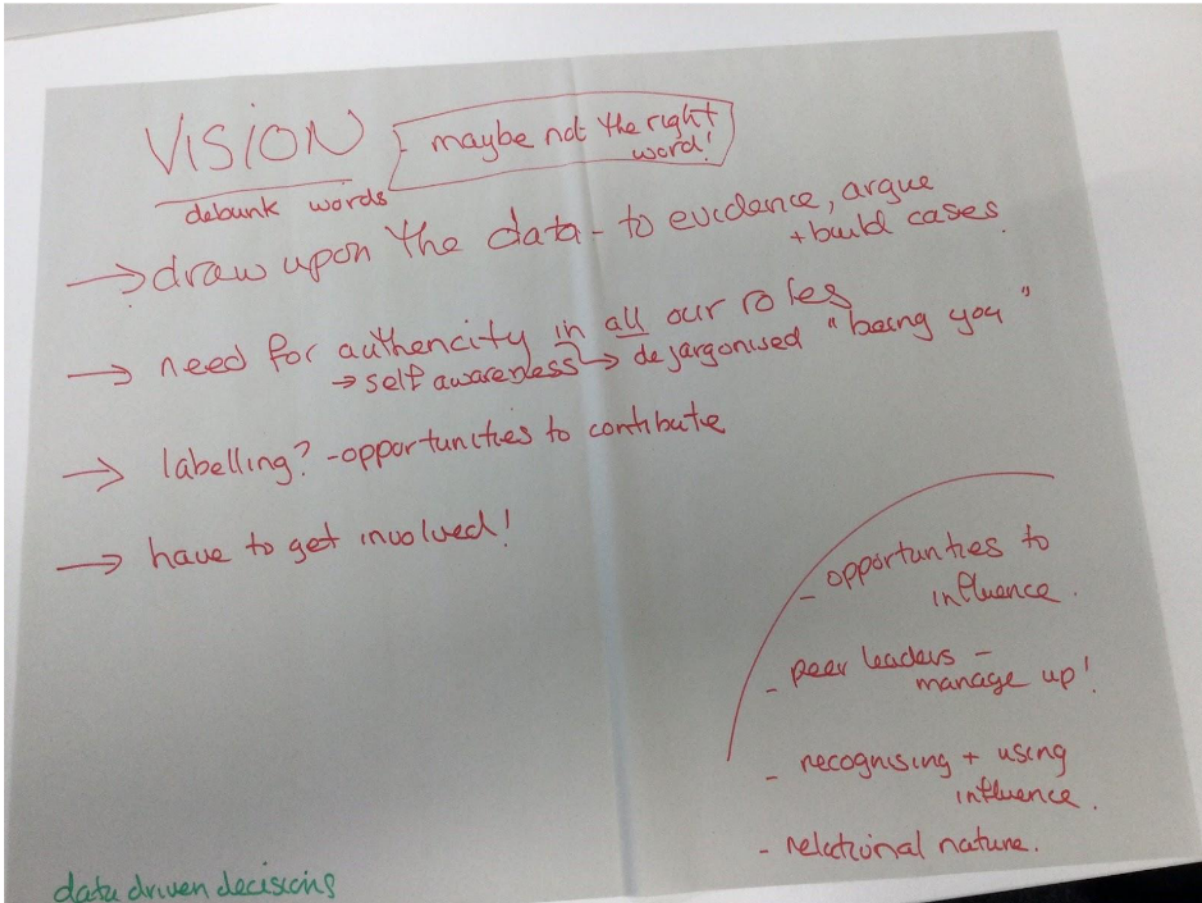 VISION
- maybe not the right
word!
debunk words
→ draw upon the data - to evidence, argue
+ build cases.
→ need for authencity in all our roles
→ self awareness → dejargonised "being you"
→ labelling? - opportunities to contibute
→ have to get involved!
- opportunities to
influence.
- peer leaders -
manage up!
- recognising + using
influence.
- relational nature.
data driven decisions